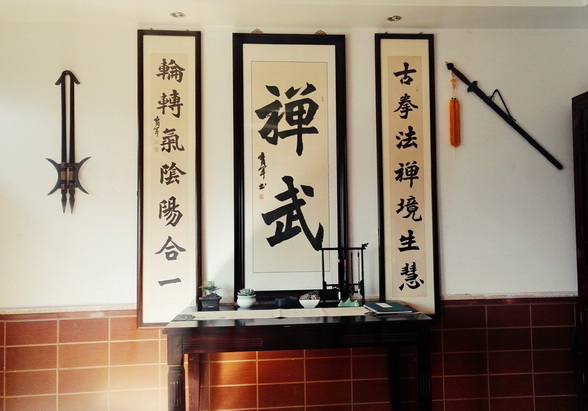 古拳法禅境生慧
禅武
輪轉氣陰陽合一